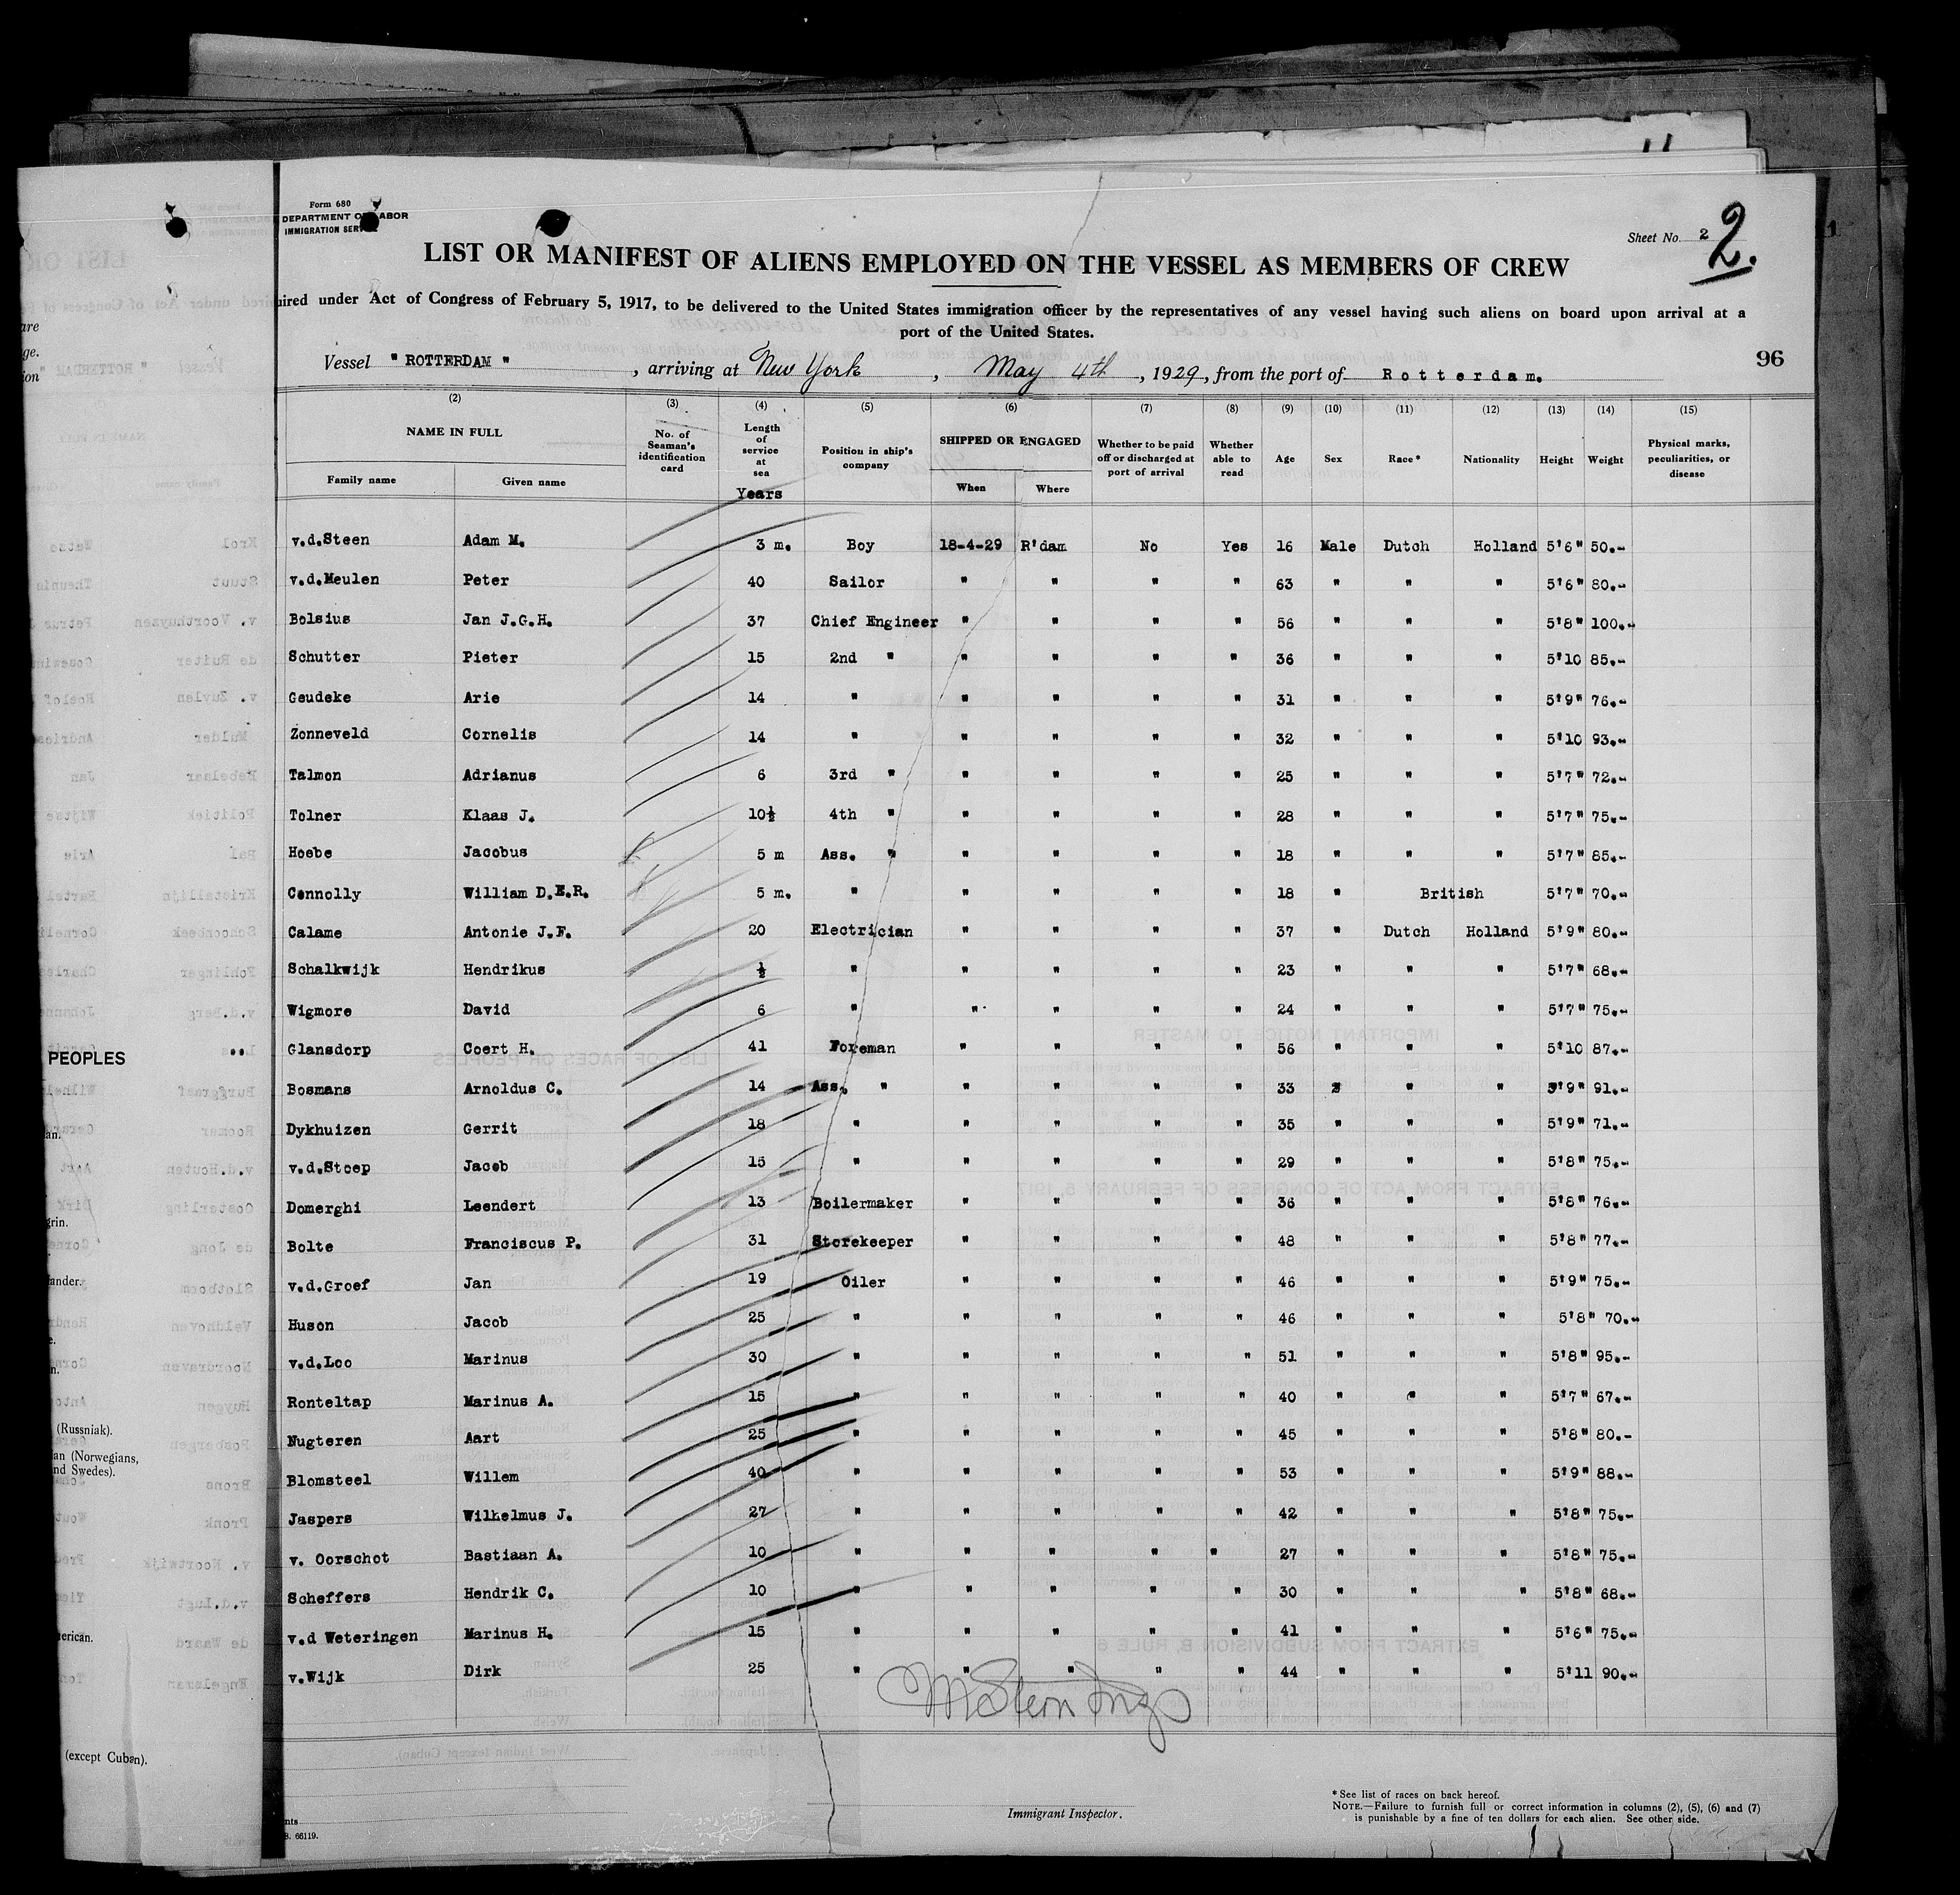 Form 680
DEPARTMENT OF LABOR
IMMIGRATION SERVICE
Sheet No. 2 2.
LIST OR MANIFEST OF ALIENS EMPLOYED ON THE VESSEL AS MEMBERS OF CREW
uired under Act of Congress of February 5, 1917, to be delivered to the United States immigration officer by the representatives of any vessel having such aliens on board upon arrival at a
port of the United States.
96
Vessel "ROTTERDAM", arriving at New York, May 4th, 1929, from the port of Rotterdam.
(2) (3) (4) (5) (6) (7) (8) (9) (10) (11) (12) (13) (14) (15)
NAME IN FULL Family name Given name No. of Seaman's identification card Length of service at sea Years Position in ship's company SHIPPED OR ENGAGED When Where Whether to be paid off or discharged at port of arrival Whether able to read Age Sex Race* Nationality Height Weight Physical marks, peculiarities, or disease
v.d.Steen Adam M. 3 m. Boy 18-4-29 R'dam No Yes 16 Male Dutch Holland 5'6" 50.-
v.d.Meulen Peter 40 Sailor " " " " 63 " " " 5'6" 80.-
Bolsius Jan J.G.H. 37 Chief Engineer " " " " 56 " " " 5'8" 100.-
Schutter Pieter 15 2nd " " " " " 36 " " " 5'10 85.-
Geudeke Arie 14 " " " " " 31 " " " 5'9" 76.-
Zonneveld Cornelis 14 " " " " " 32 " " " 5'10 93.-
Talmon Adrianus 6 3rd " " " " " 25 " " " 5'7" 72.-
Tolner Klaas J. 10½ 4th " " " " " 28 " " " 5'7" 75.-
Hoebe Jacobus 5 m Ass. " " " " " 18 " " " 5'7" 85.-
Connolly William D.E.R. 5 m. " " " " " 18 " British 5'7" 70.-
Calame Antonie J.F. 20 Electrician " " " " 37 " Dutch Holland 5'9" 80.-
Schalkwijk Hendrikus ½ " " " " " 23 " " " 5'7" 68.-
Wigmore David 6 " " " " " 24 " " " 5'7" 75.-
Glansdorp Coert H. 41 Foreman " " " " 56 " " " 5'10 87.-
Bosmans Arnoldus C. 14 Ass. " " " " " 33 " " " 5'9" 91.-
Dykhuizen Gerrit 18 " " " " " 35 " " " 5'9" 71.-
v.d.Stoep Jacob 15 " " " " " 29 " " " 5'8" 75.-
Domerghi Leendert 13 Boilermaker " " " " 36 " " " 5'8" 76.-
Bolte Franciscus P. 31 Storekeeper " " " " 48 " " " 5'8" 77.-
v.d.Groef Jan 19 Oiler " " " " 46 " " " 5'9" 75.-
Huson Jacob 25 " " " " " 46 " " " 5'8" 70.-
v.d.Loo Marinus 30 " " " " " 51 " " " 5'8" 95.-
Ronteltap Marinus A. 15 " " " " " 40 " " " 5'7" 67.-
Nugteren Aart 25 " " " " " 45 " " " 5'8" 80.-
Blomsteel Willem 40 " " " " " 53 " " " 5'9" 88.-
Jaspers Wilhelmus J. 27 " " " " " 42 " " " 5'8" 75.-
v. Oorschot Bastiaan A. 10 " " " " " 27 " " " 5'8" 75.-
Scheffers Hendrik C. 10 " " " " " 30 " " " 5'8" 68.-
v.d Weteringen Marinus H. 15 " " " " " 41 " " " 5'6" 75.-
v.Wijk Dirk 25 " " " " " 44 " " " 5'11 90.-
Immigrant Inspector.
*See list of races on back hereof.
NOTE.—Failure to furnish full or correct information in columns (2), (5), (6) and (7)
is punishable by a fine of ten dollars for each alien. See other side.
66119.
PEOPLES
(Russniak).
(Norwegians,
Swedes).
(except Cuban).